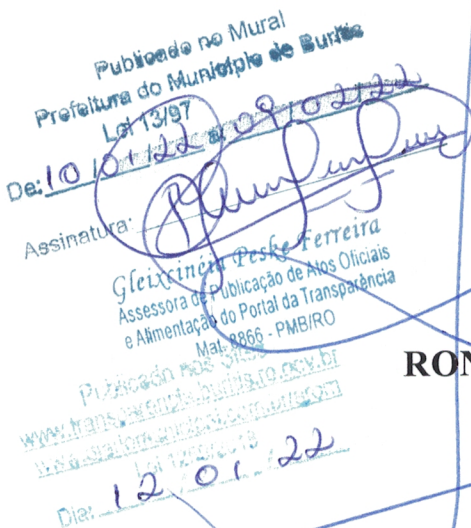 Publicado no Mural
Prefeitura do Município de Buritis
Lei 13/97
De: 10/01/22 a 09/02/22
Assinatura:
Gleixcinéia Peske Ferreira
Assessora de Publicação de Atos Oficiais
e Alimentação do Portal da Transparência
Mat. 8866 - PMB/RO
RON
Publicado nos Sites
www.transparencia.buritis.ro.gov.br
Dia: 12 01 22